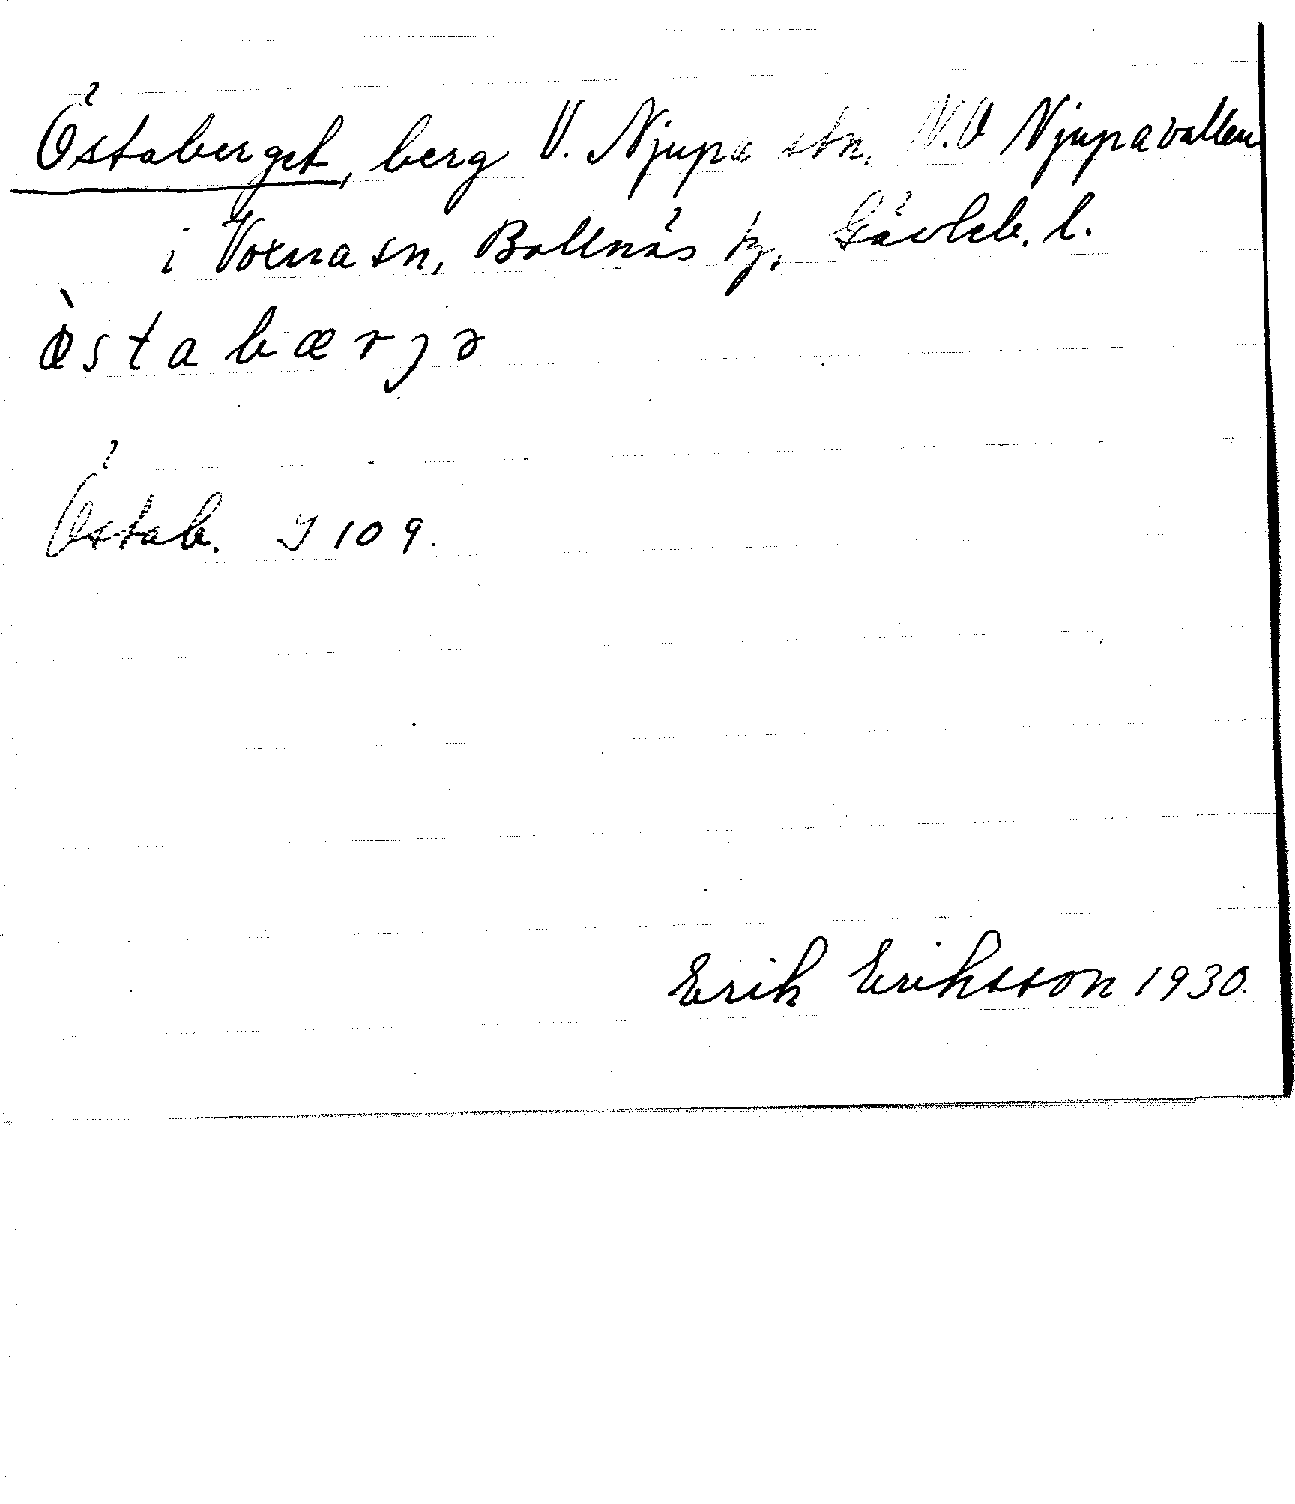 Östaberget, berg V. Njupa stn. N.V Njupavallen
i Voxna sn, Bollnäs tg, Gävleb. l.
òstabærjə
Östab. J 109.
Erik Eriksson 1930.